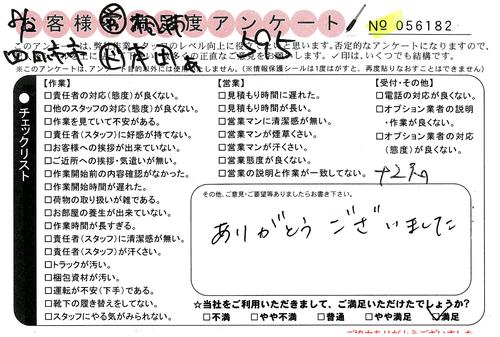 お客様満足度アンケート
№ 056182
このアンケートは、弊社作業スタッフのレベル向上に役立てたいと思います。否定的なアンケートになりますので、
✓印は、いくつでも結構です。
※このアンケートは、アンケート目的以外には使用いたしません。(※情報保護シールは1度はがすと、再度貼りなおすことはできません)
チェックリスト
【作業】
□責任者の対応(態度)が良くない。
□他のスタッフの対応(態度)が良くない。
□作業を見ていて不安がある。
□責任者(スタッフ)に好感が持てない。
□お客様への挨拶が出来ていない。
□ご近所への挨拶・気遣いが無い。
□作業開始前の内容確認がなかった。
□作業開始時間が遅れた。
□荷物の取り扱いが雑である。
□お部屋の養生が出来ていない。
□作業時間が長すぎる。
□責任者(スタッフ)に清潔感が無い。
□責任者(スタッフ)が汗くさい。
□トラックが汚い。
□梱包資材が汚い。
□運転が不安(下手)である。
□靴下の履き替えをしてない。
□スタッフにやる気がみられない。
【営業】
□見積もり時間に遅れた。
□見積もり時間が長い。
□営業マンに清潔感が無い。
□営業マンが煙草くさい。
□営業マンが汗くさい。
□営業態度が良くない。
□営業の説明と作業が一致してない。
【受付・その他】
□電話の対応が良くない。
□オプション業者の説明
・作業が良くない。
□オプション業者の対応
(態度)が良くない。
その他、ご意見・ご要望等ありましたらお書き下さい。
ありがとうございました
☆当社をご利用いただきまして、ご満足いただけてしょうか?
□不満 □やや不満 □普通 □やや満足 □満足
ご協力ありがとうございました